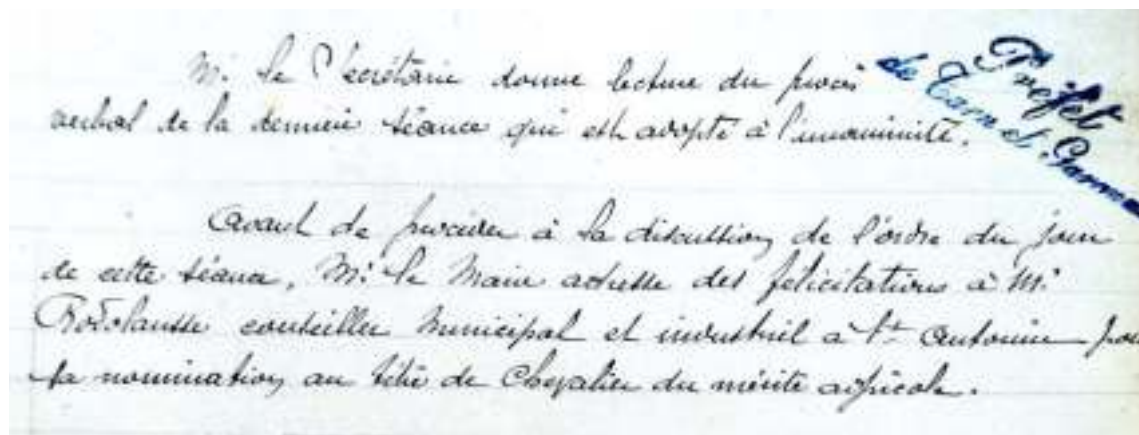 Mr le Secrétaire donne lecture du procès
verbal de la dernière séance qui est adopté à l'unanimité.
Préfet
de Tarn et Garonne
Avant de procéder à la discussion de l'ordre du jour
de cette séance, Mr le Maire adresse des félicitations à Mr
Rodolausse conseiller municipal et industriel à St Antonin pour
sa nomination au titre de Chevalier du mérite agricole.